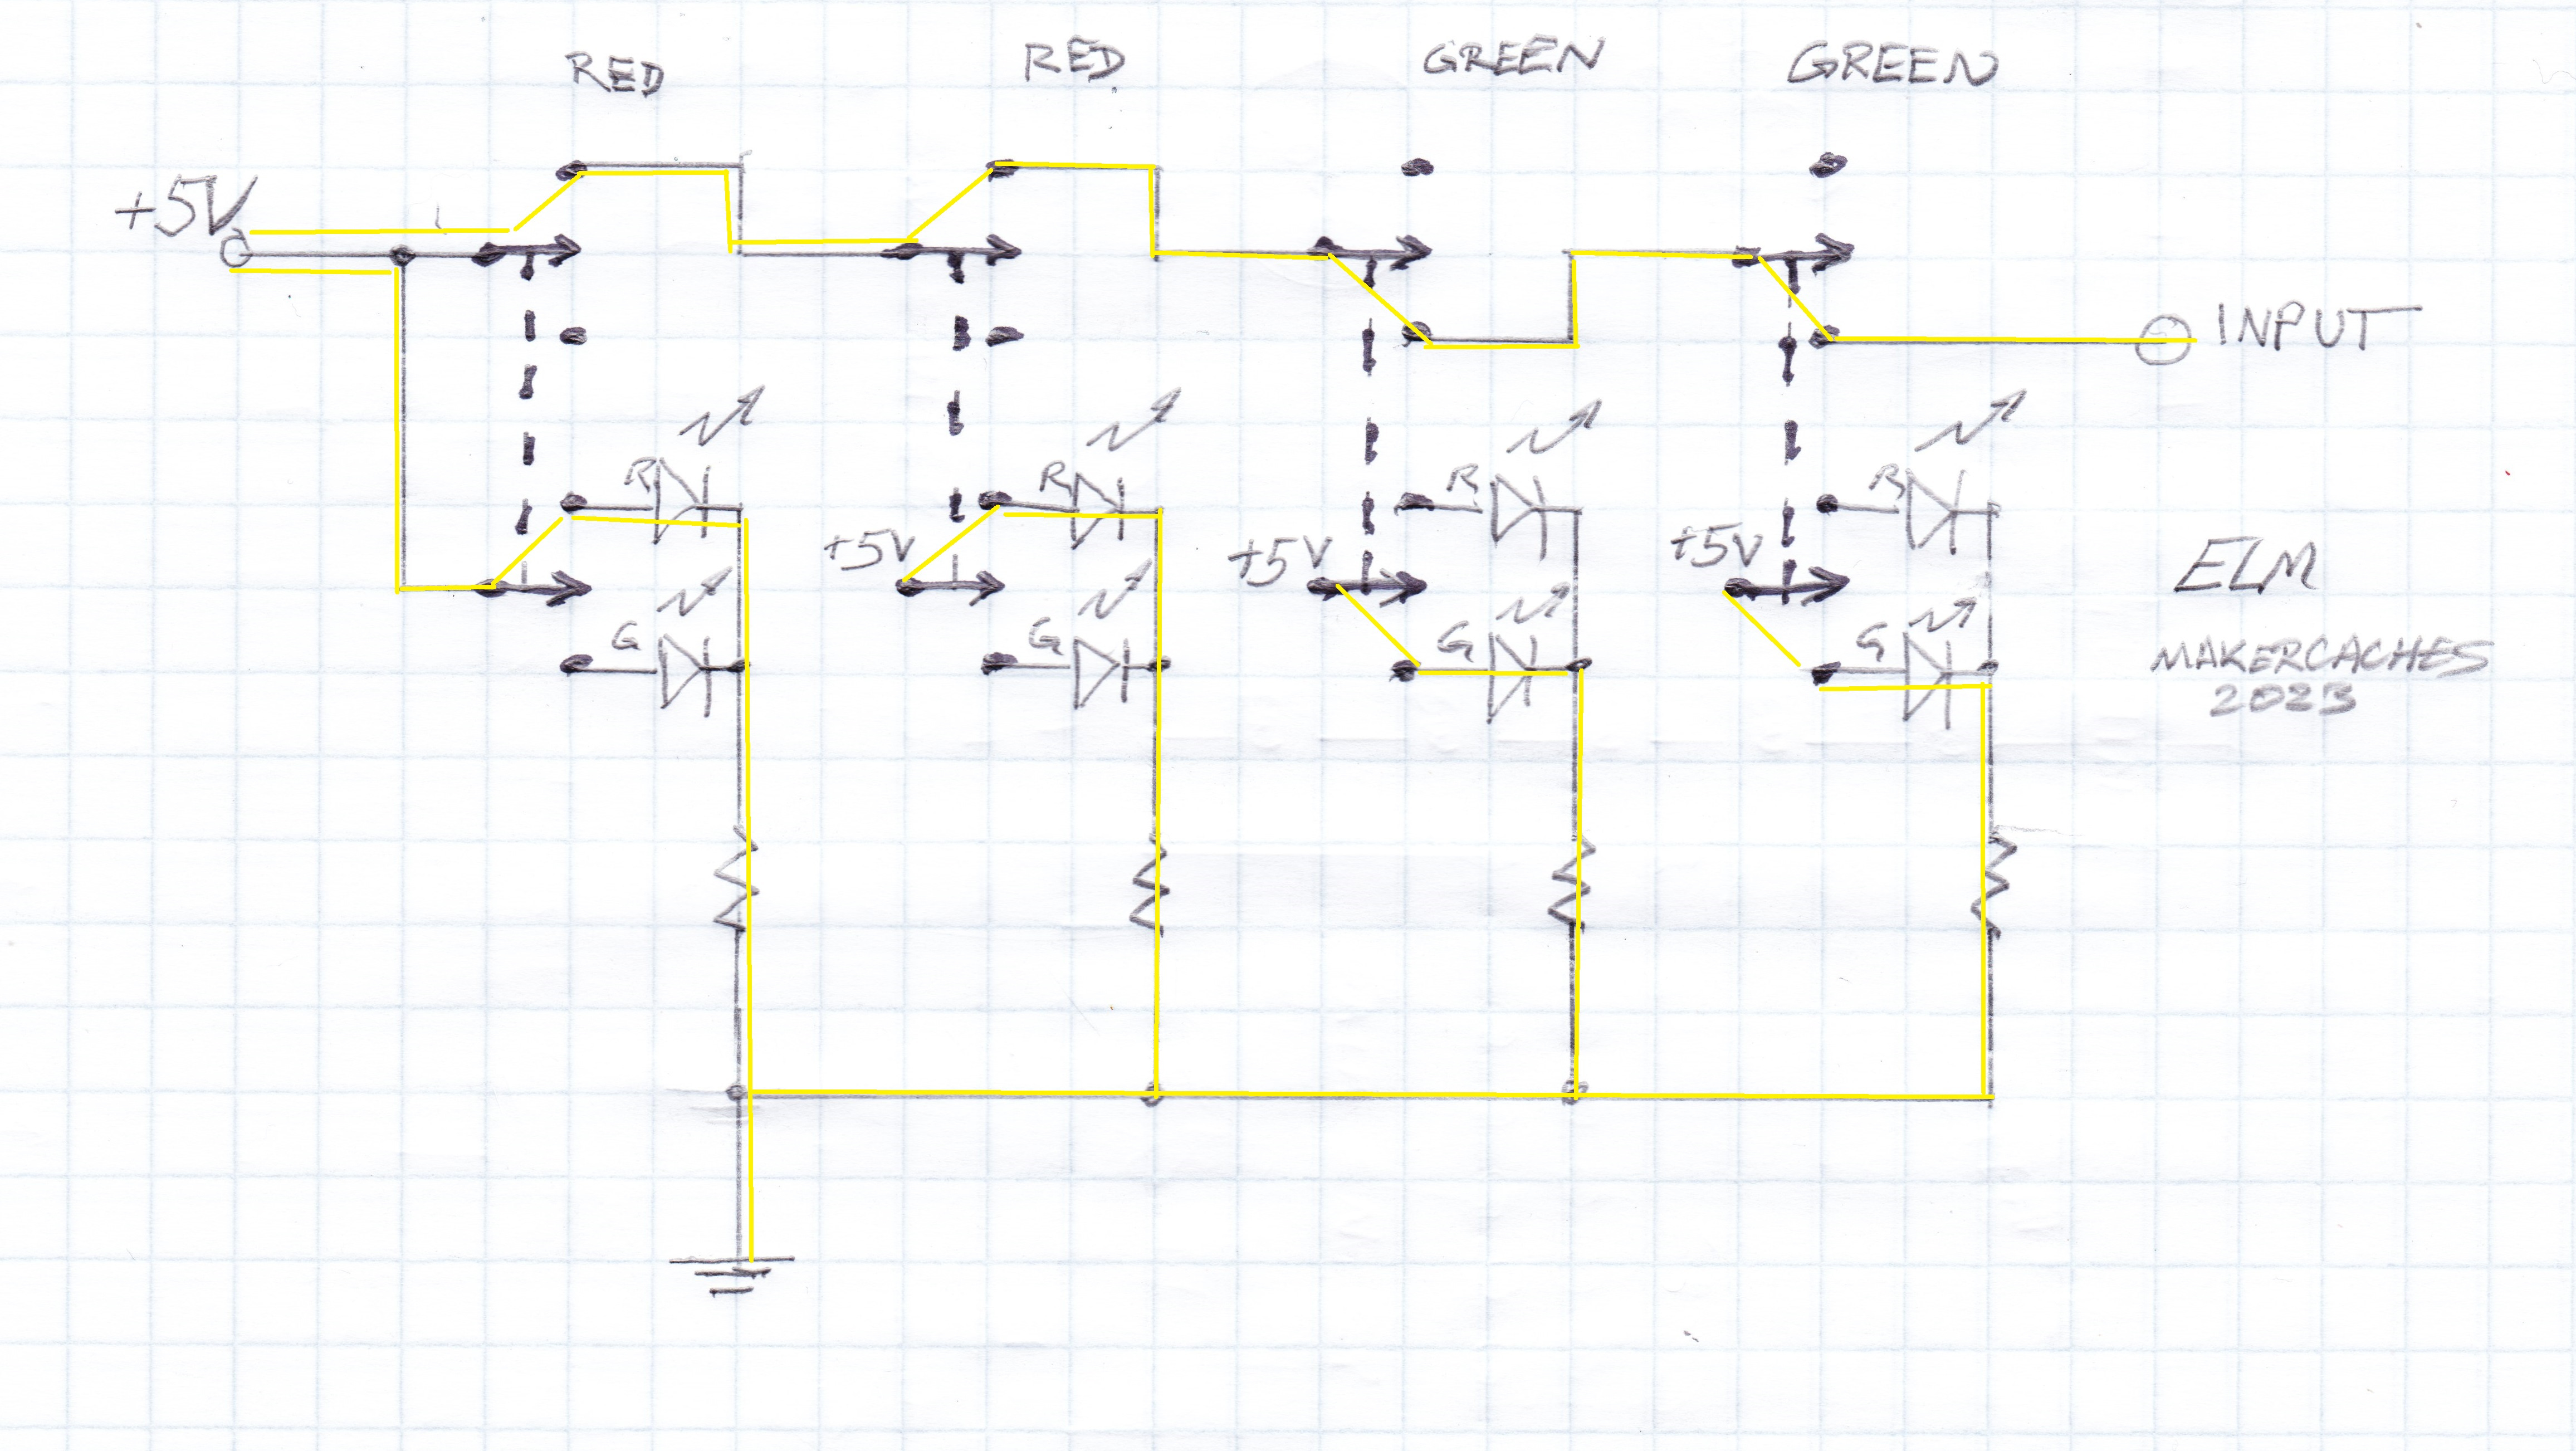 RED RED GREEN GREEN
+5V
INPUT
R R R R
+5V +5V +5V
ELM
G G G G
MAKERCACHES
2023